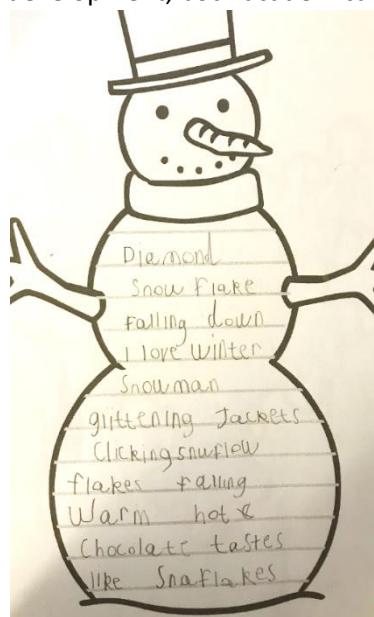 Diamond
Snow Flake
Falling down
I love Winter
Snowman
glittening Jackets
Clicking snuflow
flakes Falling
Warm hot
Chocolate tastes
like Snaflakes